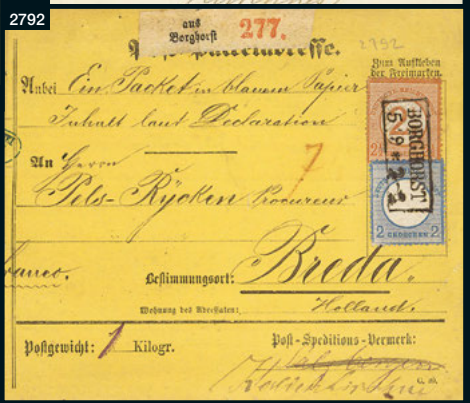 2792
aus
Borghorst 277.
Post-Packetadresse.
2792
Zum Aufkleben
der Freimarken.
Anbei Ein Packet in blauem Papier
Inhalt laut Declaration
An Herrn
7
Pels-Rÿcken Procureur
BORGHORST
5 9
2
2 GROSCHEN 2
franco.
Bestimmungsort: Breda.
Wohnung des Adressaten: Holland.
Postgewicht: 1 Kilogr.
Post-Speditions-Vermerk: